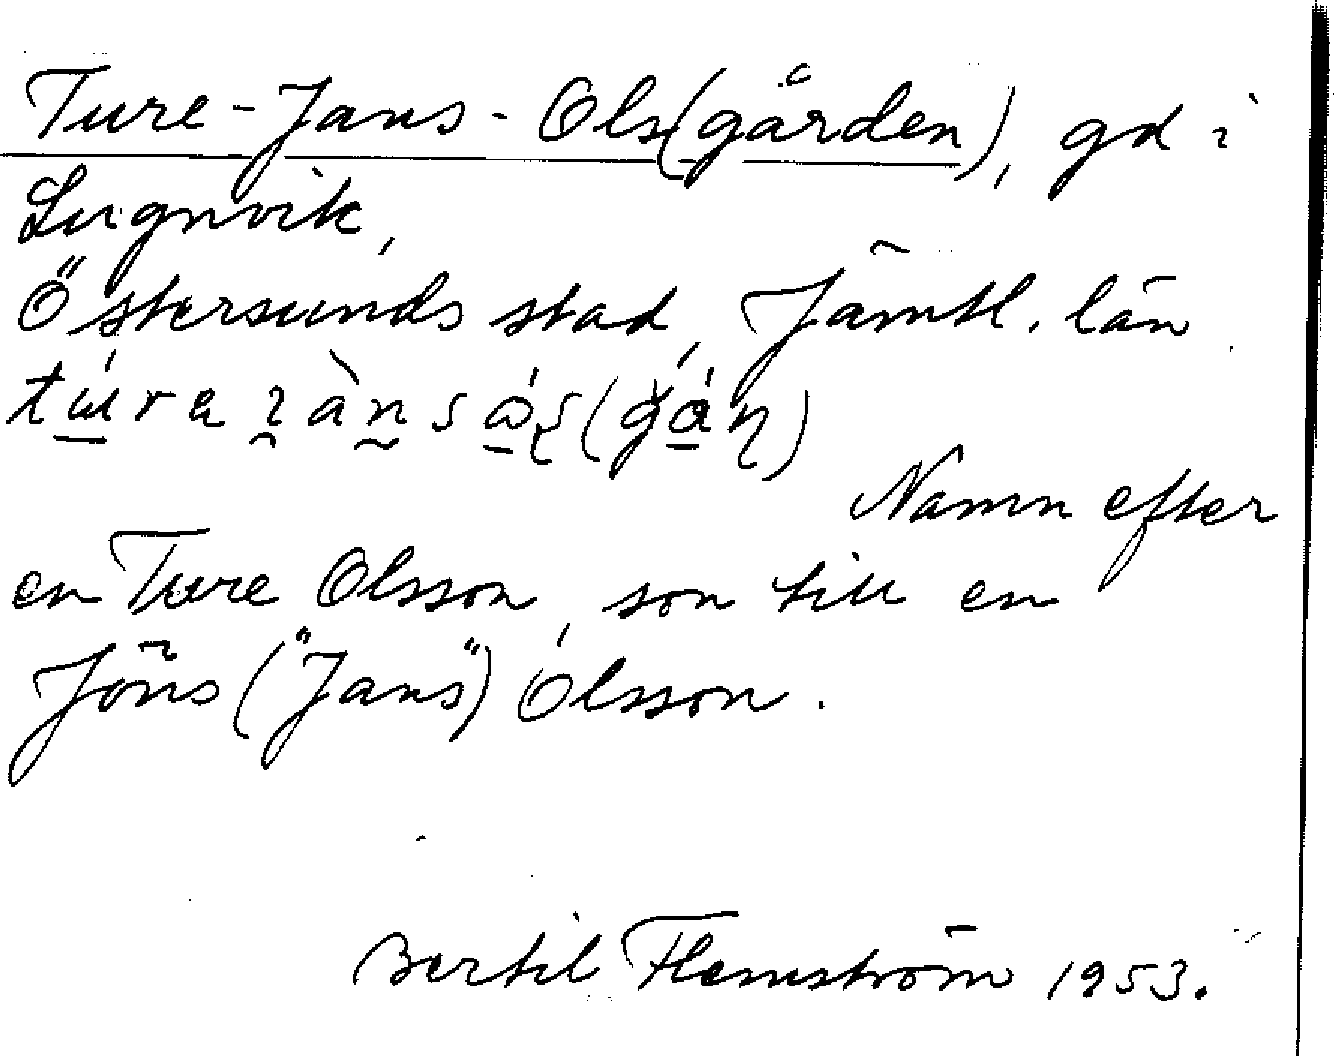 Ture-Jans-Ols(gården), gd i
Lugnvik,
Östersunds stad, Jämtl. län
Namn efter
en Ture Olsson, son till en
Jöns ("Jans") Olsson.
Bertil Flemström 1953.